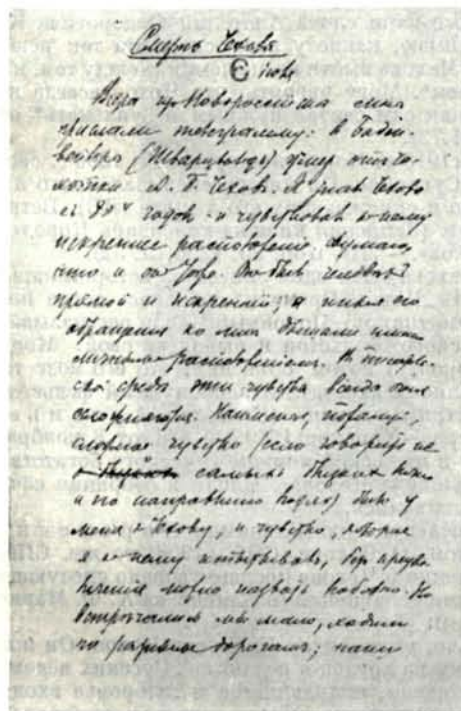 Смерть Чехова
6 июля
Вчера из Новороссийска мне
прислали телеграмму: в Баден-
вейлере (Шварцвальд) умер от чахо-
тки А. П. Чехов. Я знал Чехова
с 80х годов и чувствовал к нему
искреннее расположение. Думаю,
что и он тоже. Он был человек
прямой и искренний, а иные его
обращения ко мне дышали именно
личным расположением. В писатель-
ской среде эти чувства всегда очень
осложняются. Наименее, пожалуй,
сложное чувство (если говорить не
о самых близких лично
и по направлению людях) было у
меня к Чехову, и чувство, которое
я к нему испытывал, без преуве-
личения можно назвать любовью. Но
встречались мы мало, ходили
по разным дорогам; наши